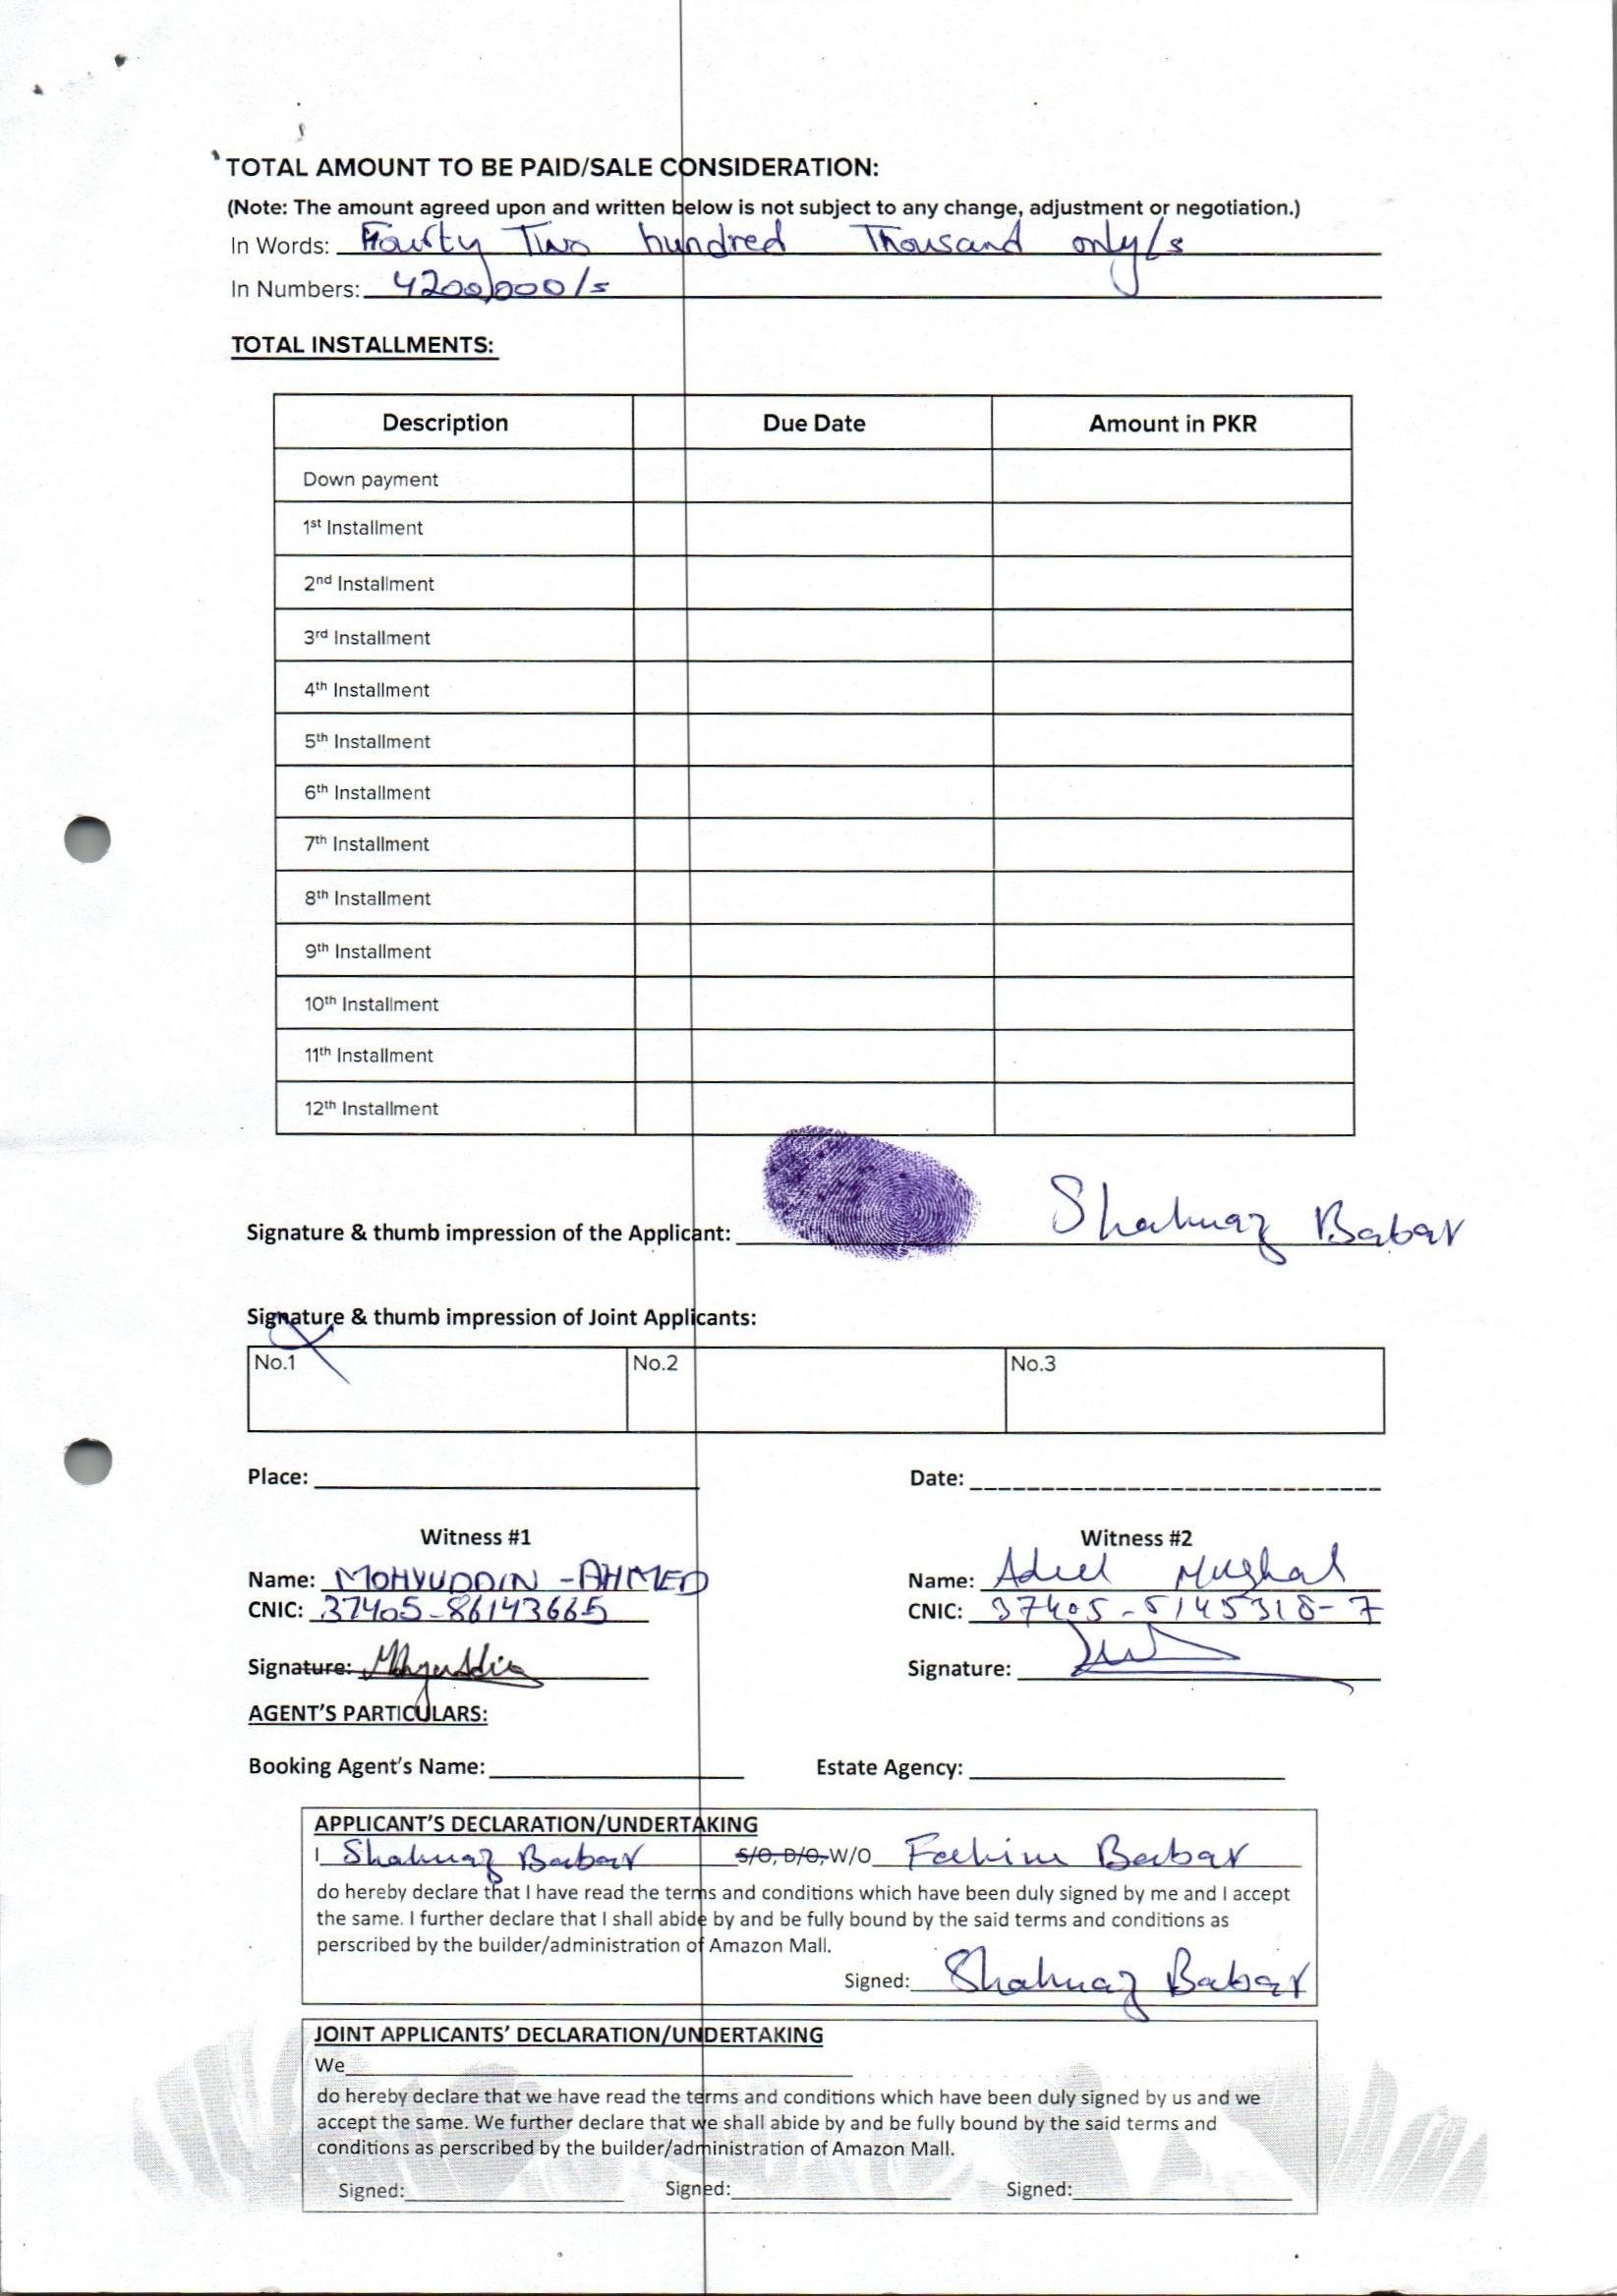 TOTAL AMOUNT TO BE PAID/SALE CONSIDERATION:
(Note: The amount agreed upon and written below is not subject to any change, adjustment or negotiation.)
In Words: Fourty Two hundred Thousand only/s
In Numbers: 4200,000/s
TOTAL INSTALLMENTS:
Description Due Date Amount in PKR
Down payment
1st Installment
2nd Installment
3rd Installment
4th Installment
5th Installment
6th Installment
7th Installment
8th Installment
9th Installment
10th Installment
11th Installment
12th Installment
Signature & thumb impression of the Applicant: Shahnaz Babar
Signature & thumb impression of Joint Applicants:
No.1 No.2 No.3
Place: Date:
Witness #1 Witness #2
Name: MOHYUDDIN - AHMED Name: Adeel Mughal
CNIC: 37405-86143665 CNIC: 37405-5145318-7
Signature: Mohyuddin Signature:
AGENT'S PARTICULARS:
Booking Agent's Name: Estate Agency:
APPLICANT'S DECLARATION/UNDERTAKING
I Shahnaz Babar S/O, D/O, W/O Faehim Babar
do hereby declare that I have read the terms and conditions which have been duly signed by me and I accept
the same. I further declare that I shall abide by and be fully bound by the said terms and conditions as
perscribed by the builder/administration of Amazon Mall.
Signed: Shahnaz Babar
JOINT APPLICANTS' DECLARATION/UNDERTAKING
We
do hereby declare that we have read the terms and conditions which have been duly signed by us and we
accept the same. We further declare that we shall abide by and be fully bound by the said terms and
conditions as perscribed by the builder/administration of Amazon Mall.
Signed: Signed: Signed: